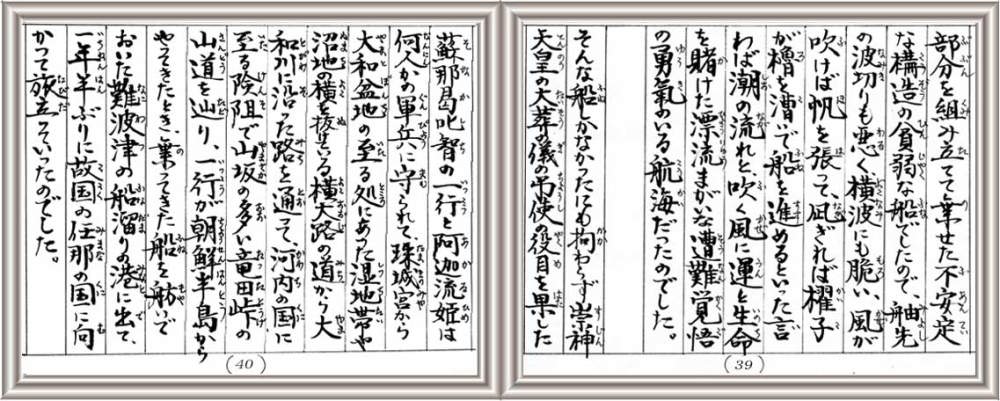 部分を組み立てて乗せた不安定
な構造の貧弱な船でしたので、舳先
の波切りも悪く、横波にも脆い、風が
吹けば帆を張って、凪ぎれば櫂子
が櫓を漕いで船を進めるといった言
わば潮の流れと吹く風に運と生命
を賭けた漂流まがいな遭難覚悟
の勇氣のいる航海だったのでした。
そんな船しかなかったにも拘わらず崇神
天皇の大葬の儀の弔使の役目を果した
(39)
蘇那曷叱智の一行と阿迦流姫は
何人かの軍兵に守られて、珠城宮から
大和盆地の至る処にあった湿地帯や
沼地の横を抜けている横大路の道から大
和川に沿った路を通って、河内の国に
至る険阻で山坂の多い竜田峠の
山道を辿り、一行が朝鮮半島から
やってきたとき、乗ってきた船を舫いで
おいた難波津の船溜りの港に出て、
一年半ぶりに故国の任那の国に向
かって旅立っていったのでした。
(40)